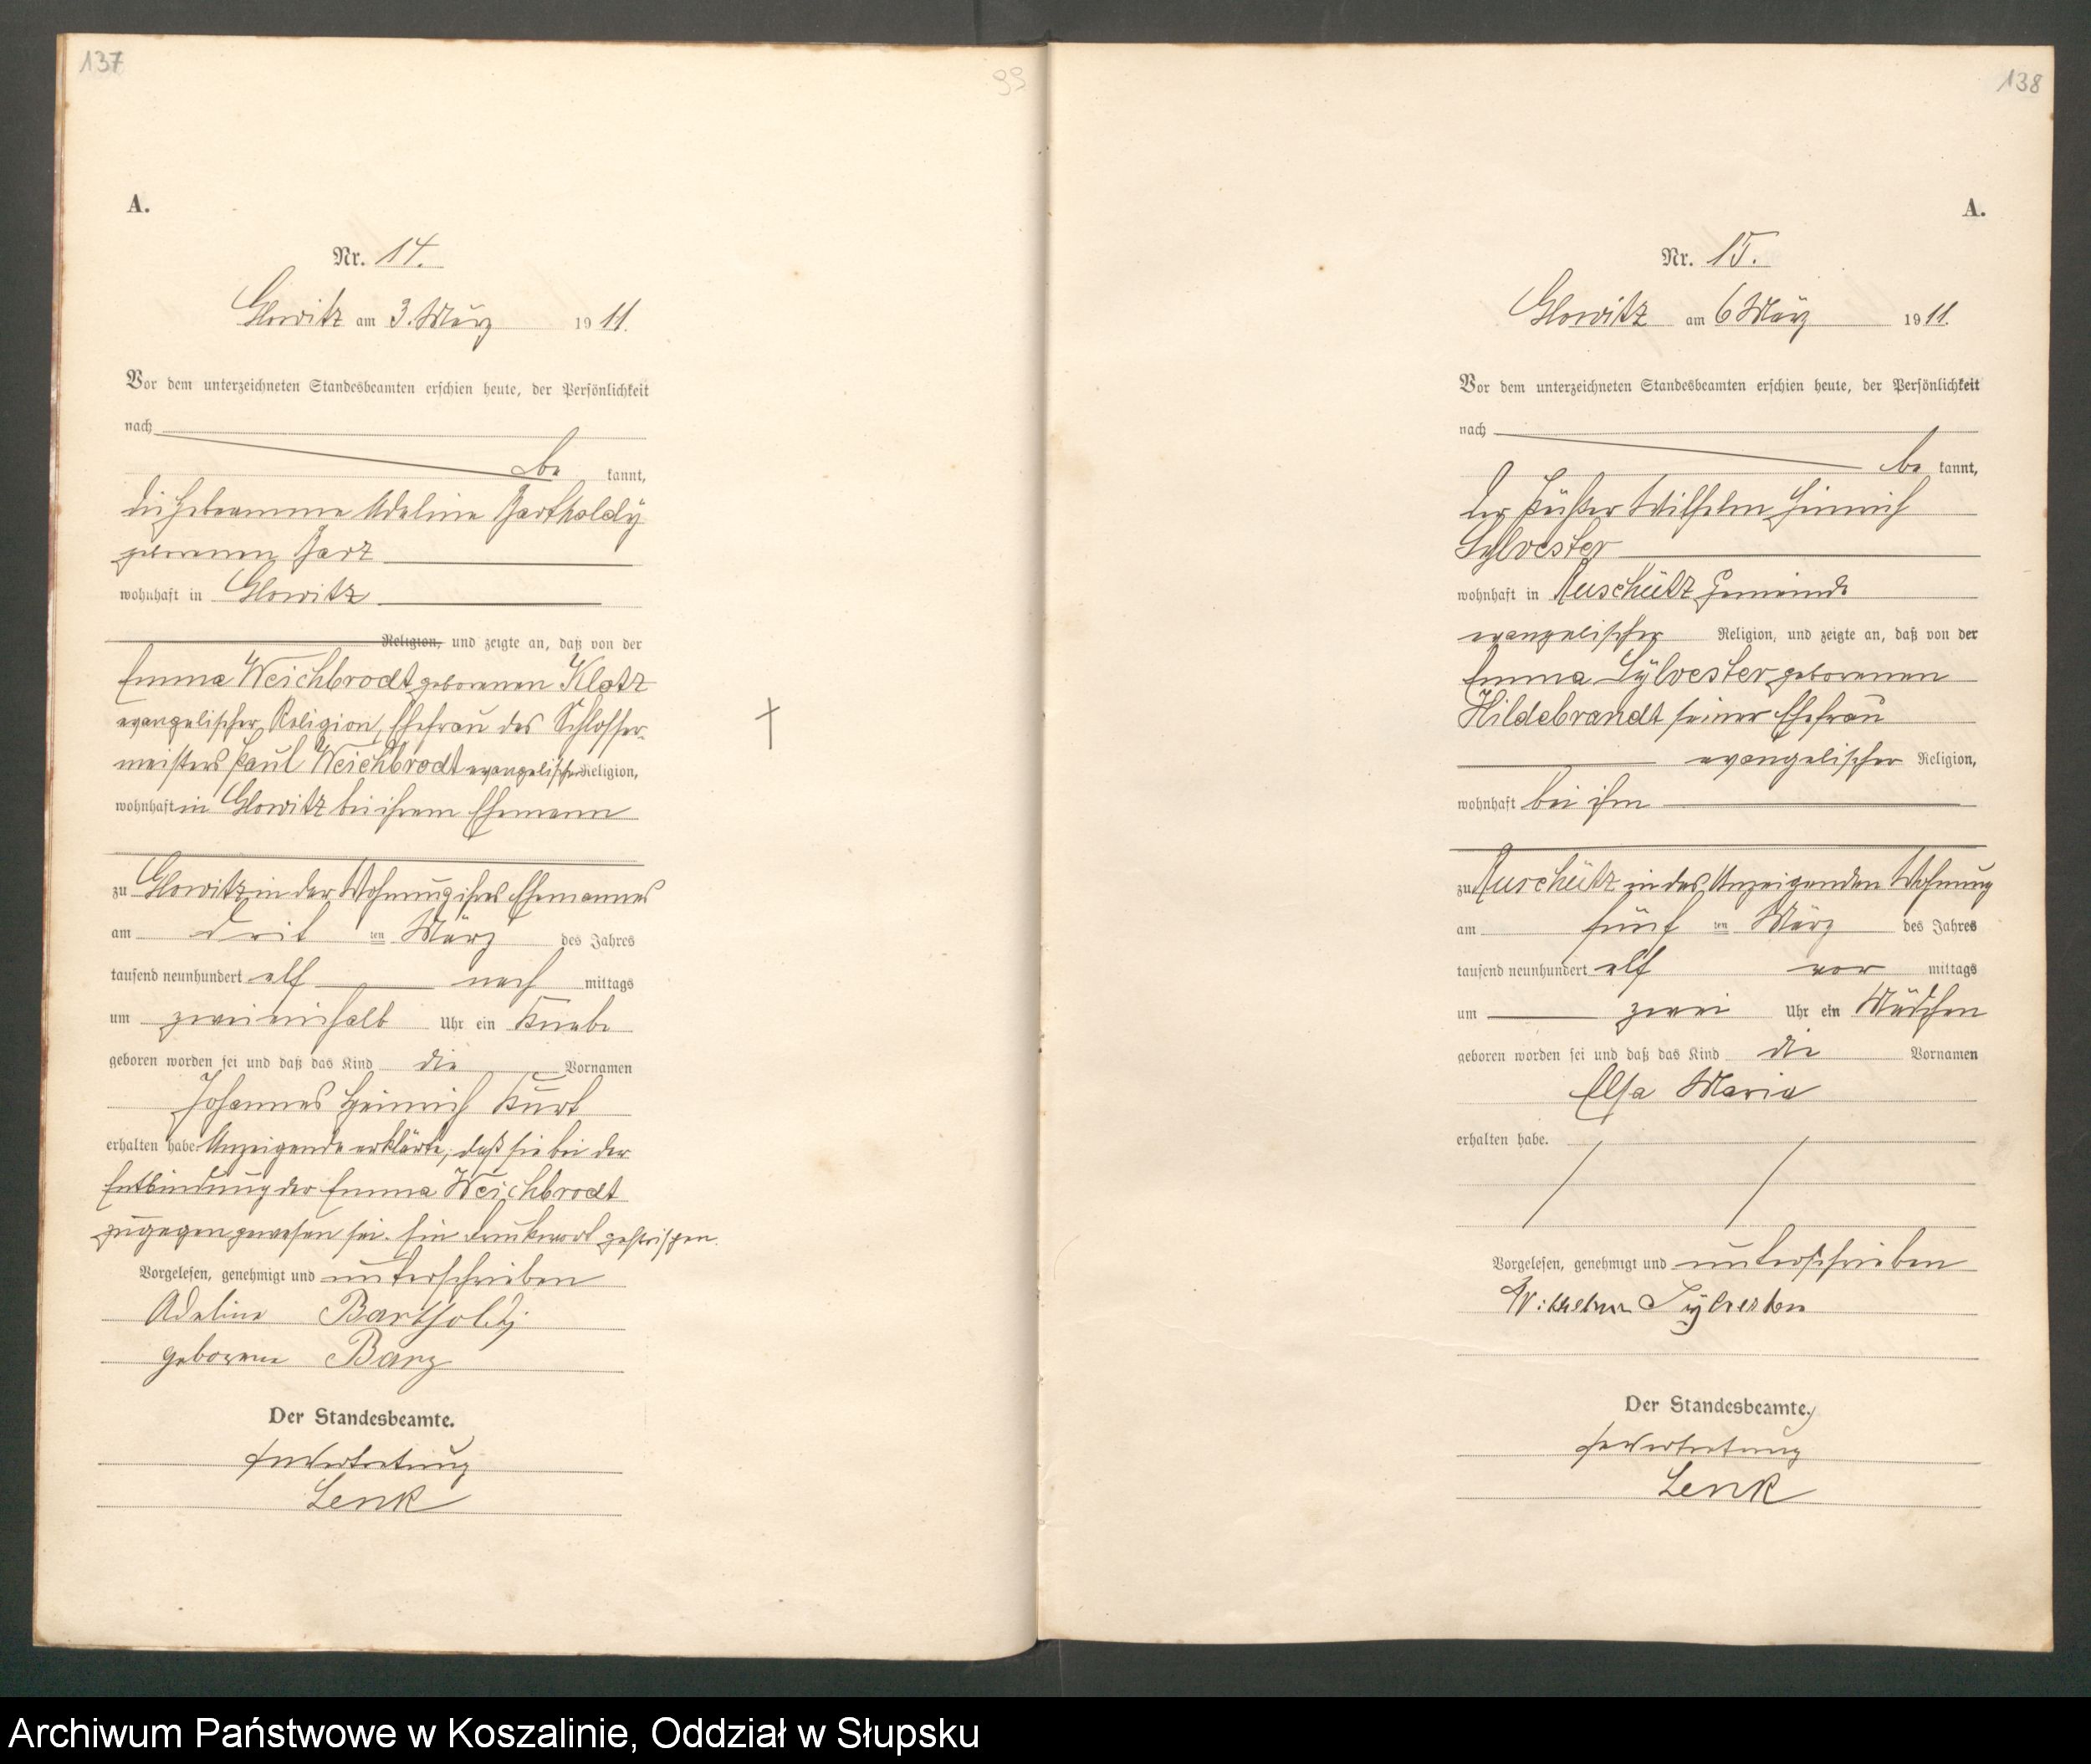 137
99
A.
Nr. 14.
Glowitz am 3. März 1911.
Vor dem unterzeichneten Standesbeamten erschien heute, der Persönlichkeit
nach
be kannt,
die Hebeamme Adeline Bartholdy
geborenen Barz
wohnhaft in Glowitz
Religion, und zeigte an, daß von der
Emma Weichbrodt geborenen Klotz
evangelischer Religion, Ehefrau des Schlosser-
meisters Paul Weichbrodt evangelischer Religion,
wohnhaft in Glowitz bei ihrem Ehemann
zu Glowitz in der Wohnung ihres Ehemannes
am drit ten März des Jahres
tausend neunhundert elf nach mittags
um zweieinhalb Uhr ein Knabe
geboren worden sei und daß das Kind die Vornamen
Johannes Heinrich Kurt
erhalten habe. Anzeigende erklärte, daß sie bei der
Entbindung der Emma Weichbrodt
zugegen gewesen sei. Ein Druckwort gestrichen.
Vorgelesen, genehmigt und unterschrieben
Adeline Bartholdy
geborene Barz
Der Standesbeamte.
In Vertretung
Lenk
138
A.
Nr. 15.
Glowitz am 6 März 1911.
Vor dem unterzeichneten Standesbeamten erschien heute, der Persönlichkeit
nach
be kannt,
der Wilhelm Heinrich
Sylvester
wohnhaft in Ruschütz Gemeinde
evangelischer Religion, und zeigte an, daß von der
Emma Sylvester geborenen
Hildebrandt seiner Ehefrau
evangelischer Religion,
wohnhaft bei ihm
zu Ruschütz in des Anzeigenden Wohnung
am fünf ten März des Jahres
tausend neunhundert elf vor mittags
um zwei Uhr ein Mädchen
geboren worden sei und daß das Kind die Vornamen
Elsa Maria
erhalten habe.
Vorgelesen, genehmigt und unterschrieben
Wilhelm Sylvester
Der Standesbeamte.
In Vertretung
Lenk
Archiwum Państwowe w Koszalinie, Oddział w Słupsku